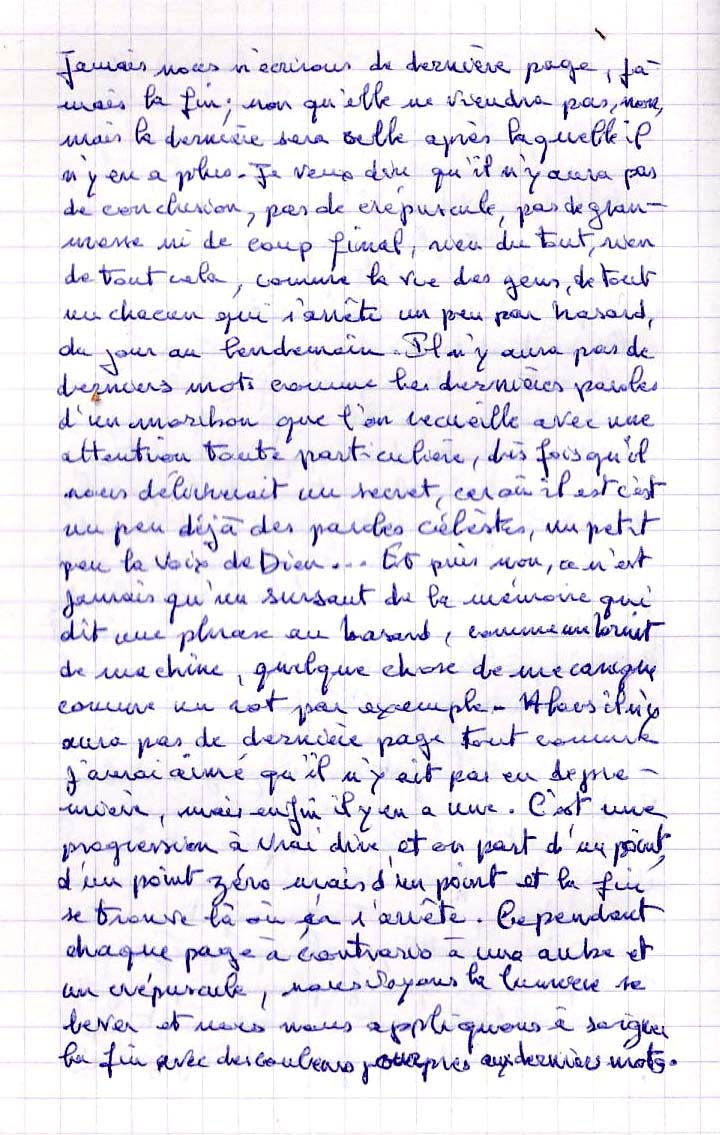 Jamais nous n'écrirons de dernière page, ja-
mais la fin; non qu'elle ne viendra pas, non,
mais la dernière sera celle après laquelle il
n'y en a plus. Je veux dire qu'il n'y aura pas
de conclusion, pas de crépuscule, pas de glan-
ni de coup final, rien du tout, rien
de tout cela, comme la vie des gens, de tout
un chacun qui s'arrête un peu par hasard,
du jour au lendemain. Il n'y aura pas de
derniers mots comme les dernières paroles
d'un moribon que l'on recueille avec une
attention toute particulière, dès fois qu'il
nous délivrerait un secret, car où il est c'est
un peu déjà des paroles célèstes, un petit
peu la voix de Dieu... Et puis non, ce n'est
jamais qu'un sursaut de la mémoire qui
dit une phrase au hasard, comme un bruit
de machine, quelque chose de mécanique
comme un rot par exemple. Alors il n'y
aura pas de dernière page tout comme
j'aurai aimé qu'il n'y ait pas eu de pre-
mière, mais enfin il y en a une. C'est une
progression à vrai dire, et on part d'un point,
d'un point zéro mais d'un point et la fin
se trouve là où on s'arrête. Cependant
chaque page a contrario a une aube et
un crépuscule, nous voyons la lumière se
lever et nous nous appliquons à soigner
la fin avec des couleurs pourpres aux derniers mots.